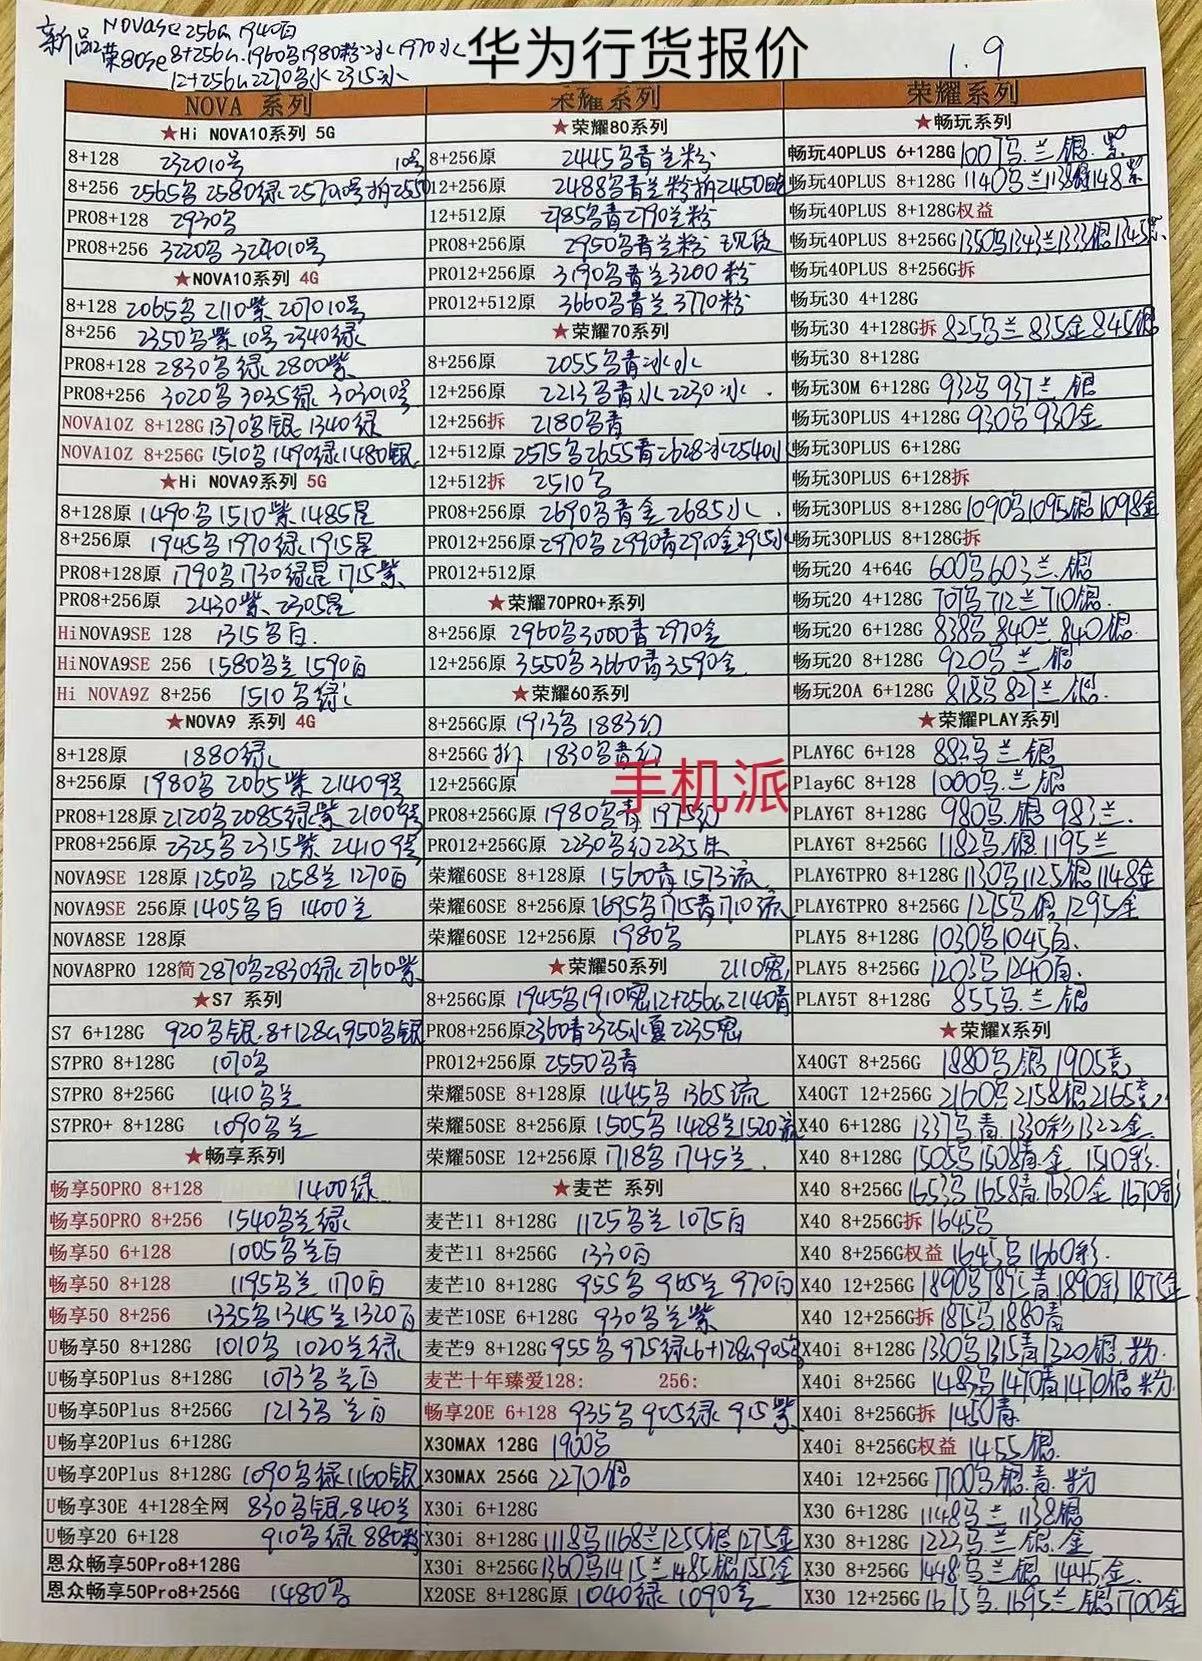 新品 NOVA se 256G 1940白
荣80se 8+256G 1960乌1980粉冰1970水
12+256G 2270乌水2315冰
华为行货报价
1.9
NOVA 系列
★Hi NOVA10系列 5G
8+128 232010号 10号
8+256 2565乌2580绿257010号拆2550
PRO8+128 2930乌
PRO8+256 3220乌324010号
★NOVA10系列 4G
8+128 2065乌2110紫207010号
8+256 2350乌紫10号2340绿
PRO8+128 2830乌绿2800紫
PRO8+256 3020乌3035绿303010号
NOVA10Z 8+128G 1370乌银1340绿
NOVA10Z 8+256G 1510乌1490绿1480银
★Hi NOVA9系列 5G
8+128原 1490乌1510紫1485星
8+256原 1945乌1970绿1915星
PRO8+128原 1790乌1730绿星1715紫
PRO8+256原 2430紫2305星
HiNOVA9SE 128 1315乌白
HiNOVA9SE 256 1580乌兰1590白
Hi NOVA9Z 8+256 1510乌绿
★NOVA9 系列 4G
8+128原 1880绿
8+256原 1980乌2065紫21409号
PRO8+128原 2120乌2085绿紫21009号
PRO8+256原 2325乌2315紫24109号
NOVA9SE 128原 1250乌1258兰1270白
NOVA9SE 256原 1405乌白1400兰
NOVA8SE 128原
NOVA8PRO 128简 2870乌2830绿2760紫
★S7 系列
S7 6+128G 920乌银8+128G950乌银
S7PRO 8+128G 1070乌
S7PRO 8+256G 1410乌兰
S7PRO+ 8+128G 1090乌兰
★畅享系列
畅享50PRO 8+128 1400绿
畅享50PRO 8+256 1540乌兰绿
畅享50 6+128 1005乌兰白
畅享50 8+128 1195乌兰1170白
畅享50 8+256 1335乌1345兰1320白
U畅享50 8+128G 1010乌1020兰绿
U畅享50Plus 8+128G 1073乌兰白
U畅享50Plus 8+256G 1213乌兰白
U畅享20Plus 6+128G
U畅享20Plus 8+128G 1090乌绿1160银
U畅享30E 4+128全网 830乌银840兰
U畅享20 6+128 910乌绿880粉
恩众畅享50Pro8+128G
恩众畅享50Pro8+256G 1480乌
荣耀系列
★荣耀80系列
8+256原 2445乌青兰粉
12+256原 2488乌青兰粉拆2450
12+512原 2785乌青2790兰粉
PRO8+256原 2950乌青兰粉 现货
PRO12+256原 3190乌青兰3200粉
PRO12+512原 3660乌青兰3770粉
★荣耀70系列
8+256原 2055乌青冰水
12+256原 2213乌青水2230冰
12+256拆 2180乌青
12+512原 2575乌2655青2628冰2540水
12+512拆 2510乌
PRO8+256原 2690乌青金2685水
PRO12+256原 2970乌2990青2910金2915水
PRO12+512原
★荣耀70PRO+系列
8+256原 2960乌3000青2970金
12+256原 3550乌3660青3590金
★荣耀60系列
8+256G原 1913乌1883幻
8+256G拆 1830乌青幻
12+256G原
手机派
PRO8+256G原 1980乌青1975幻
PRO12+256G原 2230乌幻2235朱
荣耀60SE 8+128原 1560青1573流
荣耀60SE 8+256原 1695乌1715青1710流
荣耀60SE 12+256原 1980乌
★荣耀50系列 2110密
8+256G原 1945乌1910密12+256G2140青
PRO8+256原 2360青2325水夏2235密
PRO12+256原 2550乌青
荣耀50SE 8+128原 1445乌1365流
荣耀50SE 8+256原 1505乌1428兰1520流
荣耀50SE 12+256原 1718乌1745兰
★麦芒 系列
麦芒11 8+128G 1125乌兰1075白
麦芒11 8+256G 1330白
麦芒10 8+128G 955乌965兰970白
麦芒10SE 6+128G 930乌兰紫
麦芒9 8+128G 955乌975绿6+128G905乌
麦芒十年臻爱128: 256:
畅享20E 6+128 935乌905绿915紫
X30MAX 128G 1900乌
X30MAX 256G 2270银
X30i 6+128G
X30i 8+128G 1118乌1168兰1255银1275金
X30i 8+256G 1360乌1415兰1485银1552金
X20SE 8+128G原 1040绿1090金
荣耀系列
★畅玩系列
畅玩40PLUS 6+128G 1007乌兰银紫
畅玩40PLUS 8+128G 1140乌兰1138银1148紫
畅玩40PLUS 8+128G权益
畅玩40PLUS 8+256G 1350乌1343兰1333银1345紫
畅玩40PLUS 8+256G拆
畅玩30 4+128G
畅玩30 4+128G拆 825乌兰835金845银
畅玩30 8+128G
畅玩30M 6+128G 932乌937兰银
畅玩30PLUS 4+128G 930乌930金
畅玩30PLUS 6+128G
畅玩30PLUS 6+128拆
畅玩30PLUS 8+128G 1090乌1095银1098金
畅玩30PLUS 8+128G拆
畅玩20 4+64G 600乌603兰银
畅玩20 4+128G 707乌712兰710银
畅玩20 6+128G 838乌840兰840银
畅玩20 8+128G 920乌兰银
畅玩20A 6+128G 818乌827兰银
★荣耀PLAY系列
PLAY6C 6+128 882乌兰银
Play6C 8+128 1000乌兰银
PLAY6T 8+128G 980乌银983兰
PLAY6T 8+256G 1182乌银1195兰
PLAY6TPRO 8+128G 1130乌1125银1148金
PLAY6TPRO 8+256G 1275乌银1295金
PLAY5 8+128G 1030乌1045白
PLAY5 8+256G 1203乌1240白
PLAY5T 8+128G 855乌兰银
★荣耀X系列
X40GT 8+256G 1880乌银1905竞
X40GT 12+256G 2160乌2158银2165竞
X40 6+128G 1337乌青1330彩1322金
X40 8+128G 1505乌1508青金1510彩
X40 8+256G 1653乌1658青1630金1670彩
X40 8+256G拆 1645乌
X40 8+256G权益 1645乌1660彩
X40 12+256G 1890乌1895青1890彩1875金
X40 12+256G拆 1875乌1880青
X40i 8+128G 1330乌1315青1320银粉
X40i 8+256G 1483乌1470青1470银粉
X40i 8+256G拆 1450青
X40i 8+256G权益 1455银
X40i 12+256G 1700乌银青粉
X30 6+128G 1148乌兰1138银
X30 8+128G 1223乌兰银金
X30 8+256G 1448乌兰银1445金
X30 12+256G 1675乌1695兰银1700金